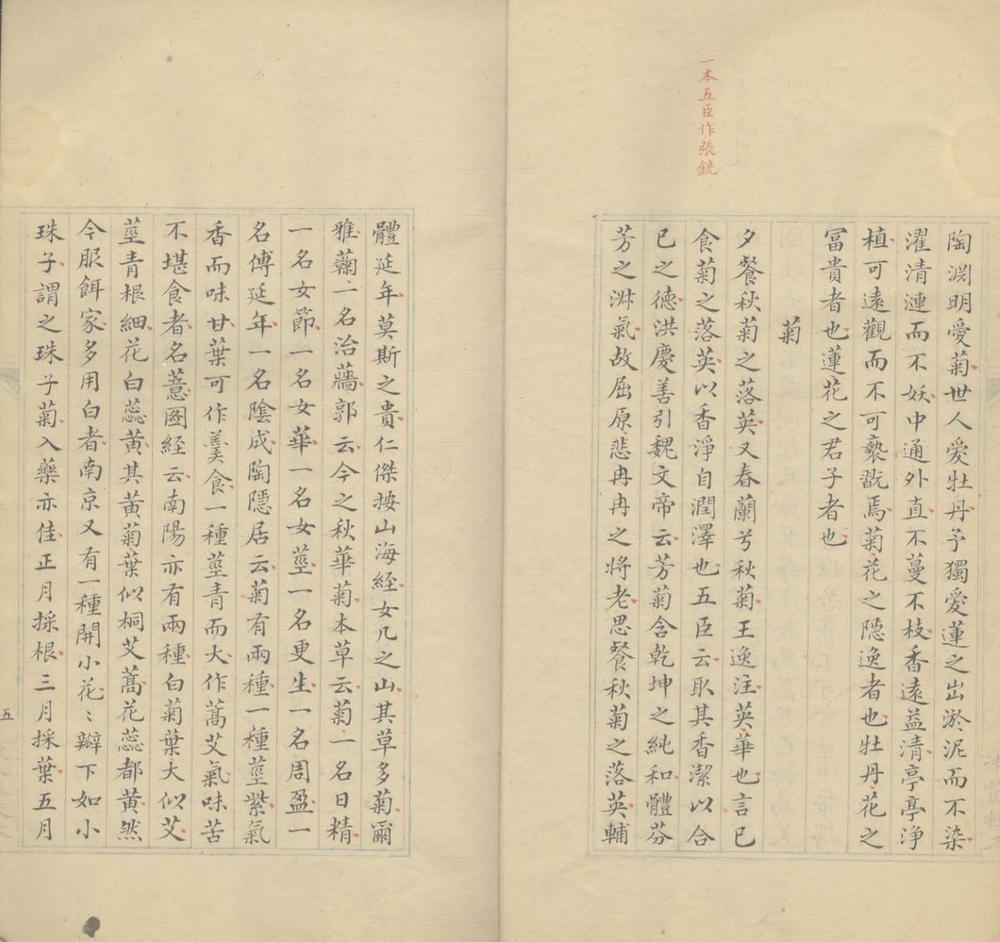 一本五臣作張銑
陶渊明愛菊世人爱牡丹予獨愛蓮之出淤泥而不染
濯清漣而不妖中通外直不蔓不枝香遠益清亭亭净
植可遠觀而不可褻翫焉菊花之隠逸者也牡丹花之
冨貴者也蓮花之君子者也
菊
夕餐秋菊之落英又春蘭兮秋菊王逸注英華也言已
食菊之落英以香淨自潤澤也五臣云取其香潔以合
已之德洪慶善引魏文帝云芳菊含乾坤之純和體芬
芳之淋氣故屈原悲冉冉之將老思餐秋菊之落英輔
體延年莫斯之貴仁傑按山海經女几之山其草多菊爾
雅蘜一名治蘠郭云今之秋華菊本草云菊一名日精
一名女節一名女華一名女莖一名更生一名周盈一
名傅延年一名陰成陶隱居云菊有兩種一種莖紫氣
香而味甘葉可作羹食一種莖青而大作蒿艾氣味苦
不堪食者名薏圖經云南陽亦有兩種白菊葉大似艾
莖青根細花白蕊黄其黄菊葉似桐艾蒿花蕊都黄然
今服餌家多用白者南京又有一種開小花〻瓣下如小
珠子謂之珠子菊入藥亦佳正月採根三月採葉五月
五